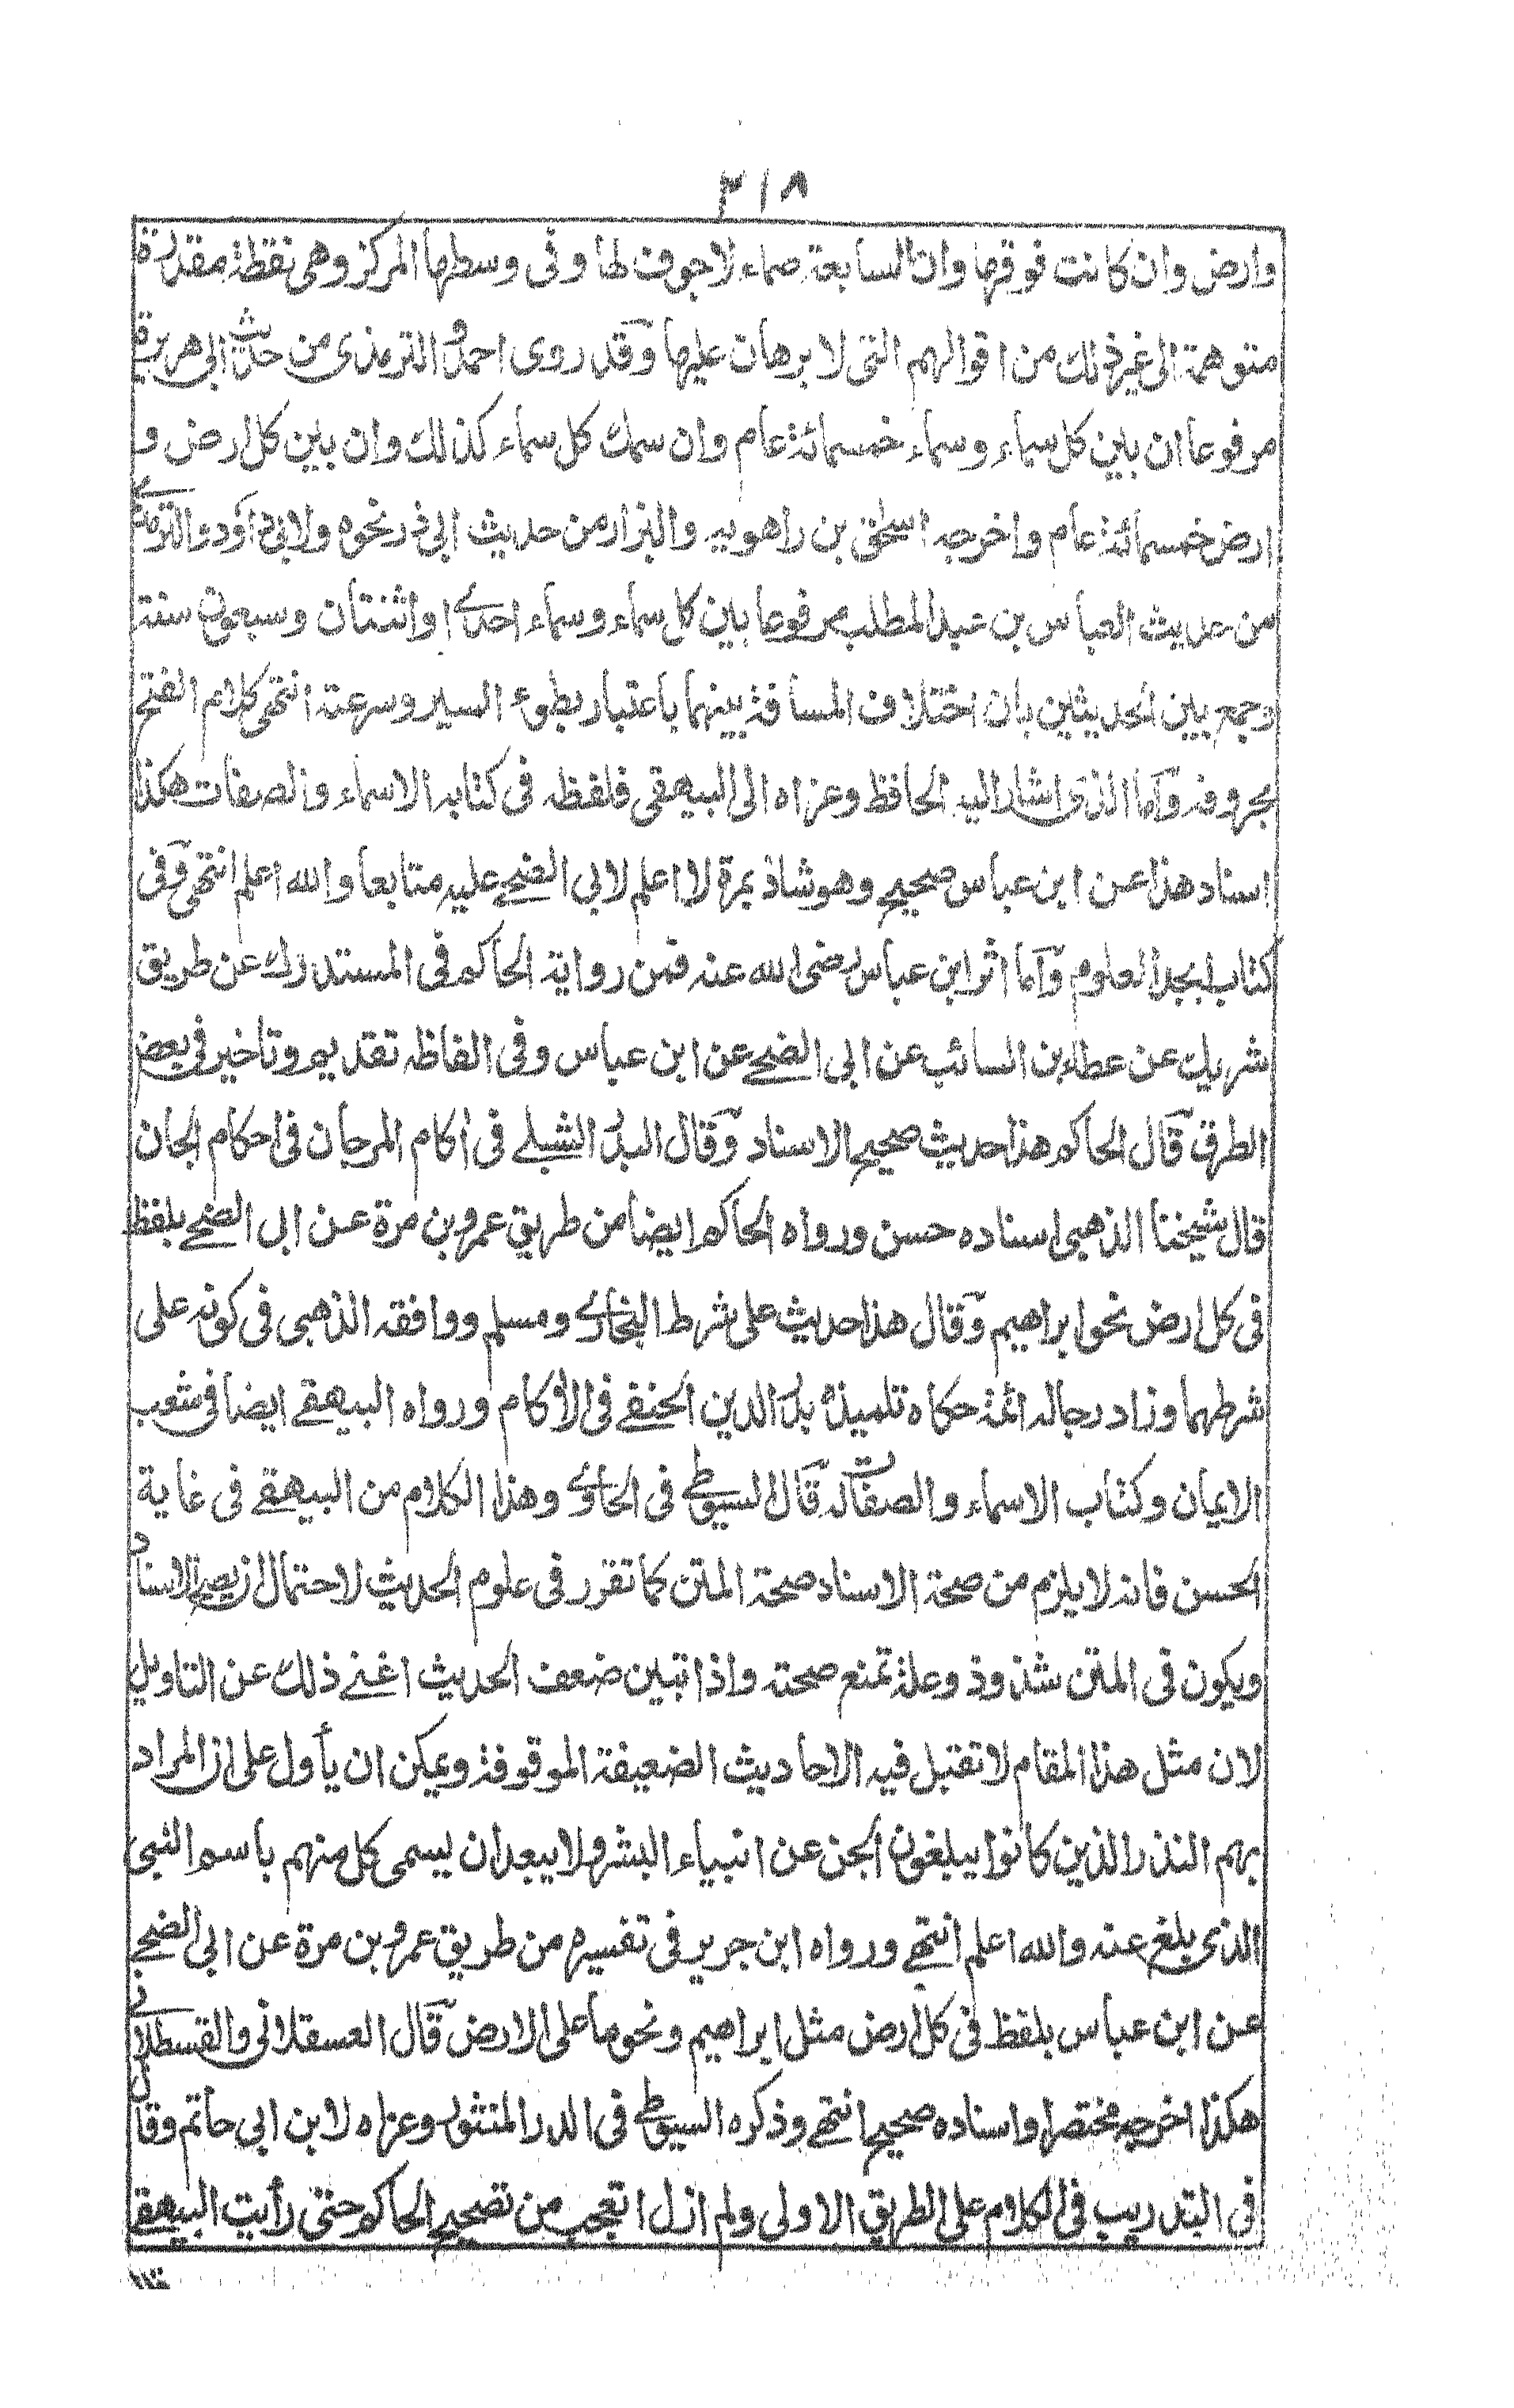 ٣١٨
وارض وان كانت فوقها وان السابعة صماء لا جوف لها وفى وسطها المركز وهى نقطة مقدرة
متوهمة الى غير ذلك من اقوالهم التى لا برهان عليها وقد روى احمد والترمذى من حديث ابى هريرة
مرفوعا ان بين كل سماء وسماء خمسمائة عام وان سمك كل سماء كذلك وان بين كل ارض و
ارض خمسمائة عام واخرجه اسحٰق بن راهويه والبزار من حديث ابى ذر نحوه ولابى داود والترمذى
من حديث العباس بن عبد المطلب مرفوعا بين كل سماء وسماء احدى او اثنتان وسبعون سنة
وجمع بين الحديثين بان اختلاف المسافة بينهما باعتبار بطوء السير وسرعته انتهى كلام الفتح
بحروفه وآما الذى اشار اليه الحافظ وعزاه الى البيهقى فلفظه فى كتابه الاسماء والصفات هكذا
اسناد هذا عن ابن عباس صحيح وهو شاذ بمرة لا اعلم لابى الضحى عليه متابعا والله اعلم انتهى وفى
كتاب ابجد العلوم وآما اثر ابن عباس رضى الله عنه فمن رواية الحاكم فى المستدرك عن طريق
شريك عن عطاء بن السائب عن ابى الضحى عن ابن عباس وفى الفاظه تقديم وتاخير فى بعض
الطرق قال الحاكم هذا حديث صحيح الاسناد وقال البدر الشبلى فى آكام المرجان فى احكام الجان
قال شيخنا الذهبى اسناده حسن ورواه الحاكم ايضا من طريق عمرو بن مرة عن ابى الضحى بلفظ
فى كل ارض نحو ابراهيم وقال هذا حديث على شرط البخارى ومسلم ووافقه الذهبى فى كونه على
شرطهما وزاد رجاله ائمة حكاه تلميذه بدر الدين الحنفى فى الأكام ورواه البيهقى ايضا فى شعب
الايمان وكتاب الاسماء والصفات له قال السيوطى فى الحاوى وهذا الكلام من البيهقى فى غاية
الحسن فانه لا يلزم من صحة الاسناد صحة المتن كما تقرر فى علوم الحديث لاحتمال ان يصح الاسناد
ويكون فى المتن شذوذ وعلة تمنع صحته واذا تبين ضعف الحديث اغنى ذلك عن التاويل
لان مثل هذا المقام لا تقبل فيه الاحاديث الضعيفة الموقوفة ويمكن ان يأول على ان المراد
بهم النذر الذين كانوا يبلغون الجن عن انبياء البشر ولا يبعد ان يسمى كل منهم باسم النبى
الذى يبلغ عنه والله اعلم انتهى ورواه ابن جرير فى تفسيره من طريق عمرو بن مرة عن ابى الضحى
عن ابن عباس بلفظ فى كل ارض مثل ابراهيم ونحو ما على الارض قال العسقلانى والقسطلانى
هكذا اخرجه مختصرا واسناده صحيح انتهى وذكره السيوطى فى الدر المنثور وعزاه لابن ابى حاتم وقال
فى التدريب فى الكلام على الطريق الاولى ولم ازل اتعجب من تصحيح الحاكم حتى رأيت البيهقى